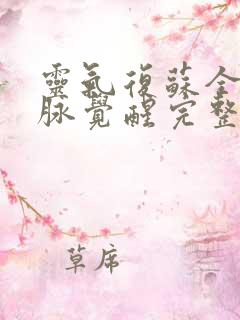 靈氣復蘇全
脉覺醒完整
草席